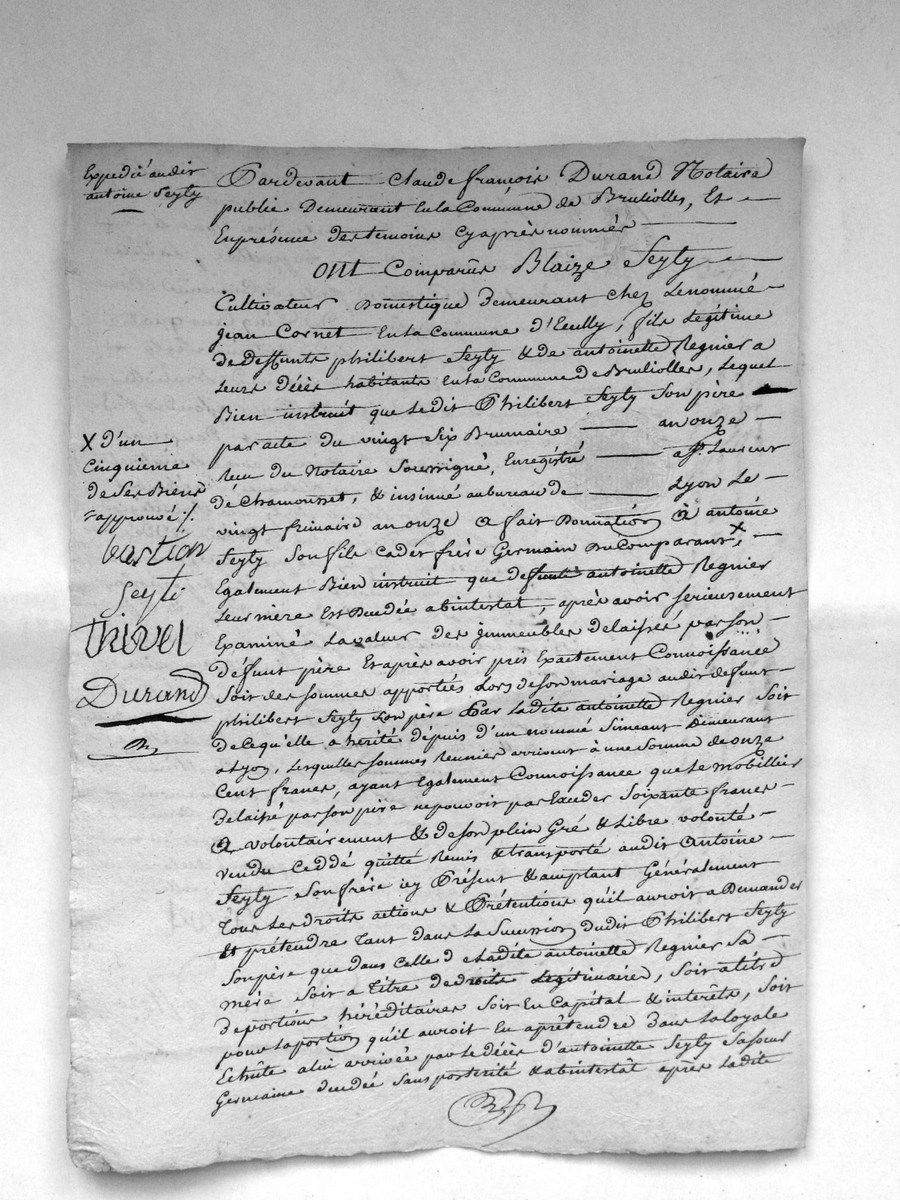 Expedié audit
antoine Seyty
Pardevant Claude françois Durand Notaire
public Demeurant En la Commune de Brulioles, Et
En présence des temoins cy après nommés
Ont Comparûs Blaize Seyty
Cultivateur Domestique Demeurant chez Le nommé
jean Cornet En la Commune d'Ecully, fils Légitime
de Deffunts philibert Seyty & de antoinette Regnier a
Leurs décès habitants En la Commune de Brulioles, Lequel
Bien instruit que Ledit Philibert Seyty Son père
par acte du vingt Six Brumaire an onze
Recu du Notaire Soussigné, Enregistré a St. Laurent
de Chamousset, & insinué au bureau de Lyon Le
vingt frimaire an onze a fait Donnation à antoine
Seyty Son fils cadet frère Germain du Comparant X,
Egalement Bien instruit que deffunte antoinette Regnier
Leur mère Est Décédée abintestat, après avoir serieusement
Examiné La valeur des jmmeubles délaissés par son
défunt père Et après avoir pris Exactement Connoissance
Soit des sommes apportées Lors de son mariage audit defunt
philibert Seyty Son père Par Ladite antoinette Regnier Soit
de ce qu'elle a hérité dépuis d'un nommé Simeant Demeurant
a Lyon, Lesquelles sommes Reunies arrivent à une Somme de onze
Cent francs, ayant Egalement Connoissance que Le mobillier
Délaissé par son père ne pouvoit pas Exceder Soixante francs
a volontairement & de son plein Gré & Libre volonté
vendu Ceddé quitté Remis & transporté audit Antoine
Seyty Son frère icy Présent & acceptant Généralement
Tous Ses droits actions & Prétentions qu'il auroit a Demander
Et prétendre Tant dans La Succession dudit Philibert Seyty
Son père que dans Celle de Ladite antoinette Regnier Sa
mère Soit a Titre de droits Legitimaires, Soit a titre
de portions héréditaires Soit En Capital & interêts, Soit
pour La portion qu'il auroit Eu a prétendre dans La loyale
Echûte a lui arrivée par Le décès d'antoinette Seyty Sa soeur
Germaine décédée Sans posterité & abintestat après Ladite
X d'un
Cinquieme
de Ses Biens
approuvé
bastion
Seyti
thivel
Durand